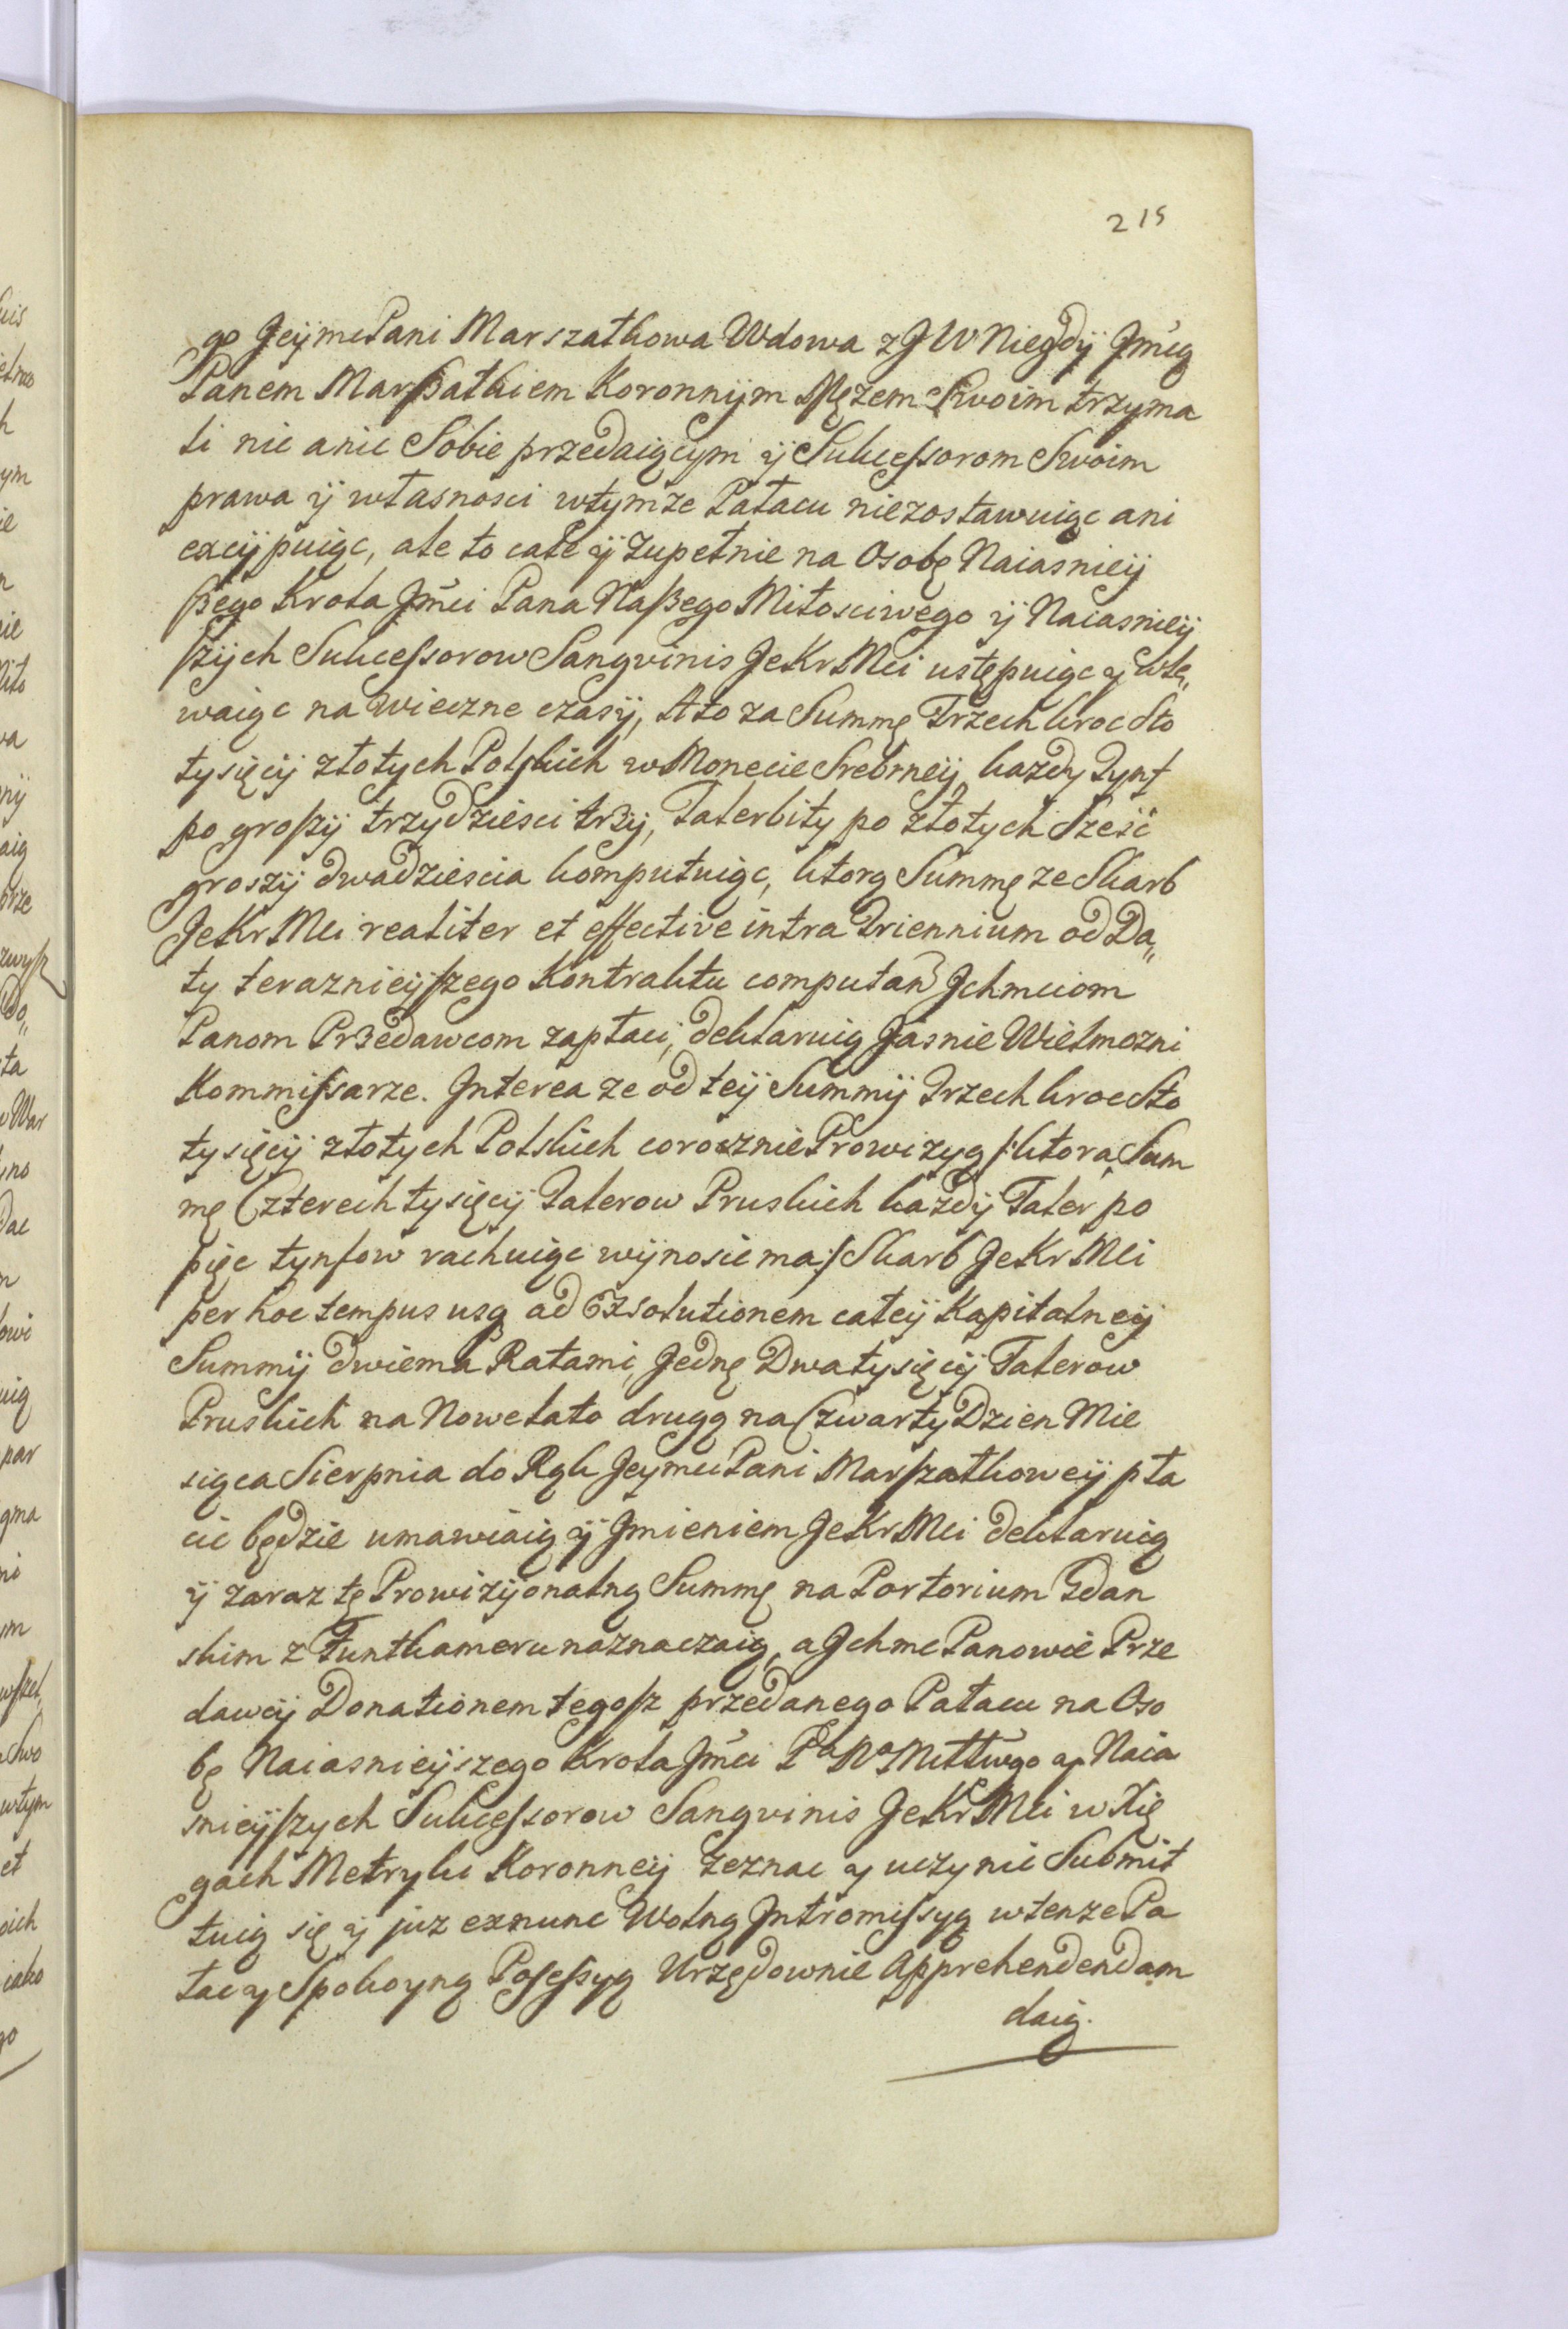 215
go Jeymc Pani Marszałkowa Wdowa z JW Niegdÿ Jmcią
Panem Marßałkiem Koronnÿm Mężem Swoim trzyma
li nic a nic Sobie przedaiącym ÿ Sukcessorom Swoim
prawa ÿ własnosci wtymże Pałacu niezostawuiąc ani
excÿpuiąc, ale to całe ÿ zupełnie na Osobę Naiasnieÿ
ßego Krola Jmći Pana Naßego Miłosciwego ÿ Naiasnieÿ
szÿch Sukcessorow Sangvinis JeKrMci ustępuiąc y wle„
waiąc na wieczne czasÿ, A to za Summę Trzechkroc Sto
tysięcÿ złotych Polskich w Monecie Srebrneÿ, każdy Tynf
po groszÿ trzydziesci trzÿ, Talerbity po złotych Sześć
groszÿ dwadziescia komputuiąc, ktorą Summę ze Skarb
JeKrMci realiter et effective intra Triennium od Da„
ty teraznieÿszego Kontraktu computan Jchmciom
Panom Przedawcom zapłaci, deklaruią Jasnie Wielmozni
Kommissarze. Jnterea ze od teÿ Summÿ Trzechkroc Sto
tysięcÿ złotych Polskich corocznie Prowizyą /:ktora Sum
mę Czterech tysięcÿ Talerow Pruskich każdÿ Taler po
pięc tynfow rachuiąc wÿnosic ma:/ Skarb JeKrMci
per hoc tempus usq ad Exsolutionem całeÿ Kapitalneÿ
Summÿ dwiema Ratami, Jednę Dwa tysięcÿ Talerow
Pruskich na Nowe lato drugą na Czwarty Dzien Mie
siąca Sierpnia do Rąk Jeymci Pani Marszałkoweÿ pła
cic będzie umawiaią ÿ Jmieniem JeKrMci deklaruią
ÿ zaraz tę Prowizÿonalną Summę na Portorium Gdan
skim z Funtkameru naznaczaią, a Jchmc Panowie Prze
dawcÿ Donationem tegosz przedanego Pałacu na Oso
bę Naiasnieÿszego Krola Jmći Pa Na Mtłwgo y Naia
snieÿszych Sukcessorow Sangvinis JeKrMci w Xię
gach Metryki Koronneÿ zeznac y uczynic Submit
tuią się y juz exnunc Wolną Jntromissyą wtenze Pa
łac y Spokoyną Possessyą Urzędownie Apprehendendam
daią.